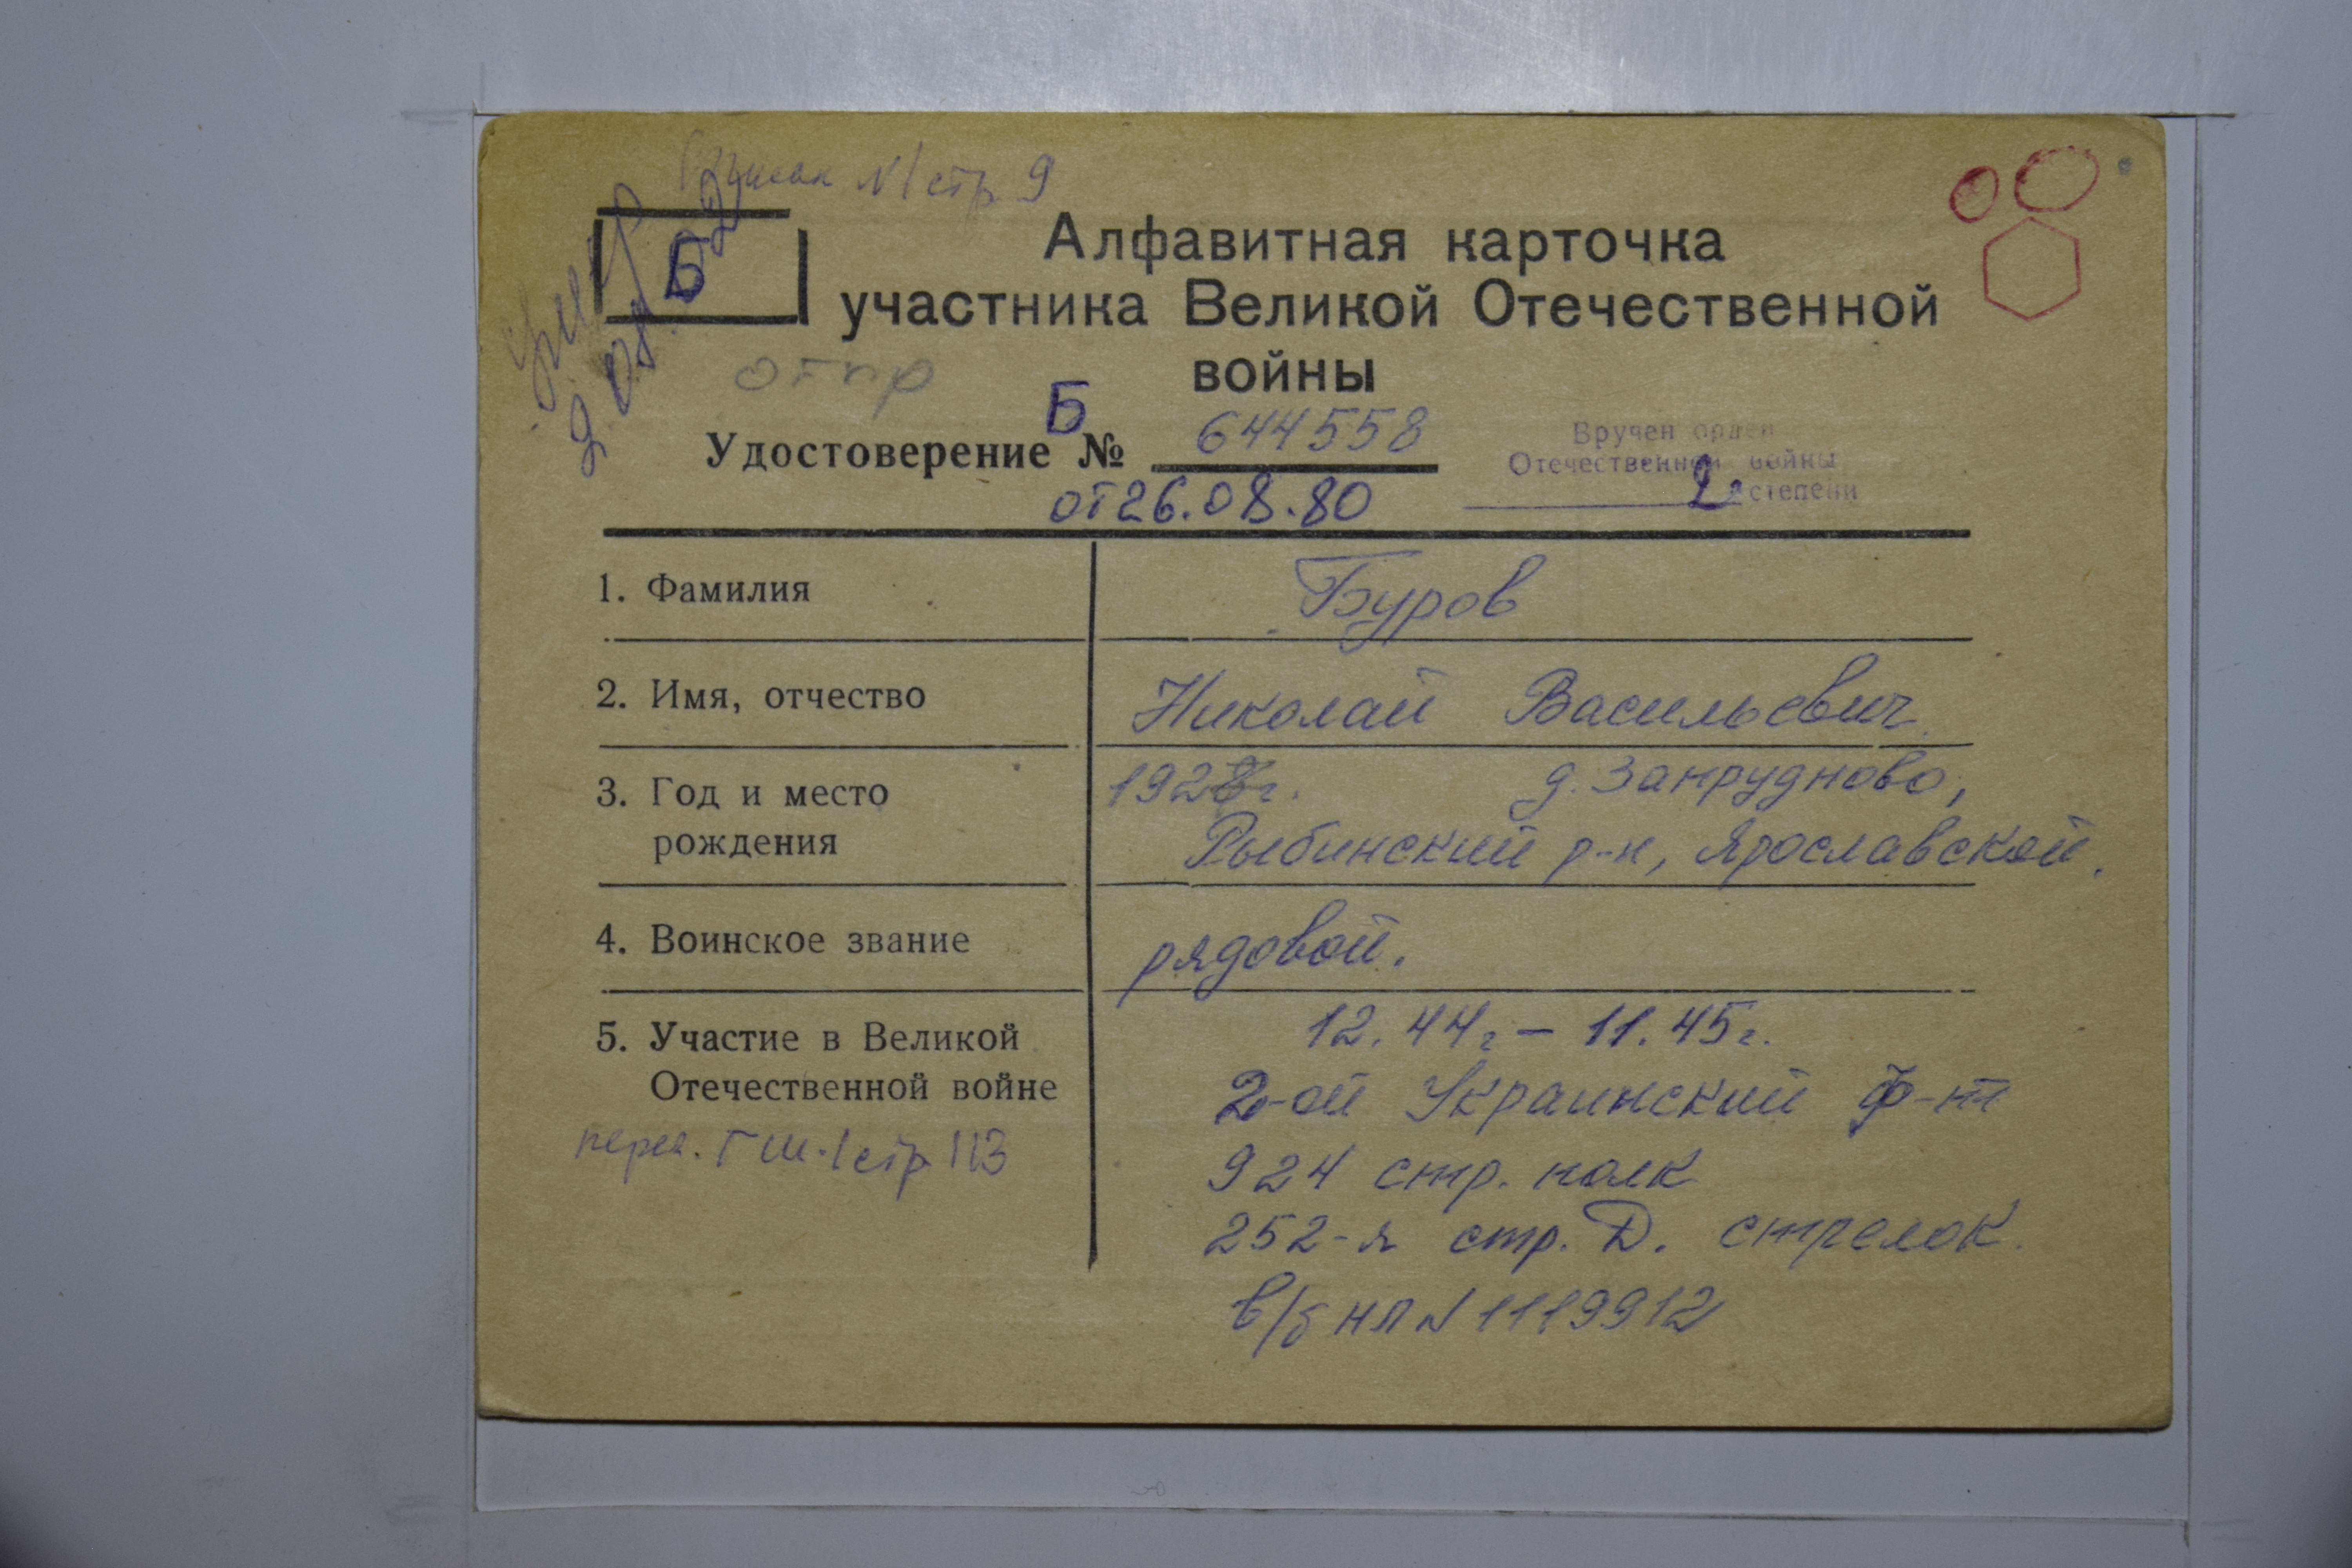 Список N1 стр 9
Б
Алфавитная карточка
участника Великой Отечественной
войны
отпр
Удостоверение Б № 644558
от 26.08.80
Вручен орден
Отечественной войны
2 степени
1. Фамилия
Буров
2. Имя, отчество
Николай Васильевич
3. Год и место
рождения
г. д. Запрудново,
Рыбинский р-н, Ярославской.
4. Воинское звание
рядовой.
5. Участие в Великой
Отечественной войне
12.44г – 11.45г.
2-ой Украинский ф-т
924 стр. полк
252-я стр. Д. стрелок.
в/б НП N 1119912
стр 113